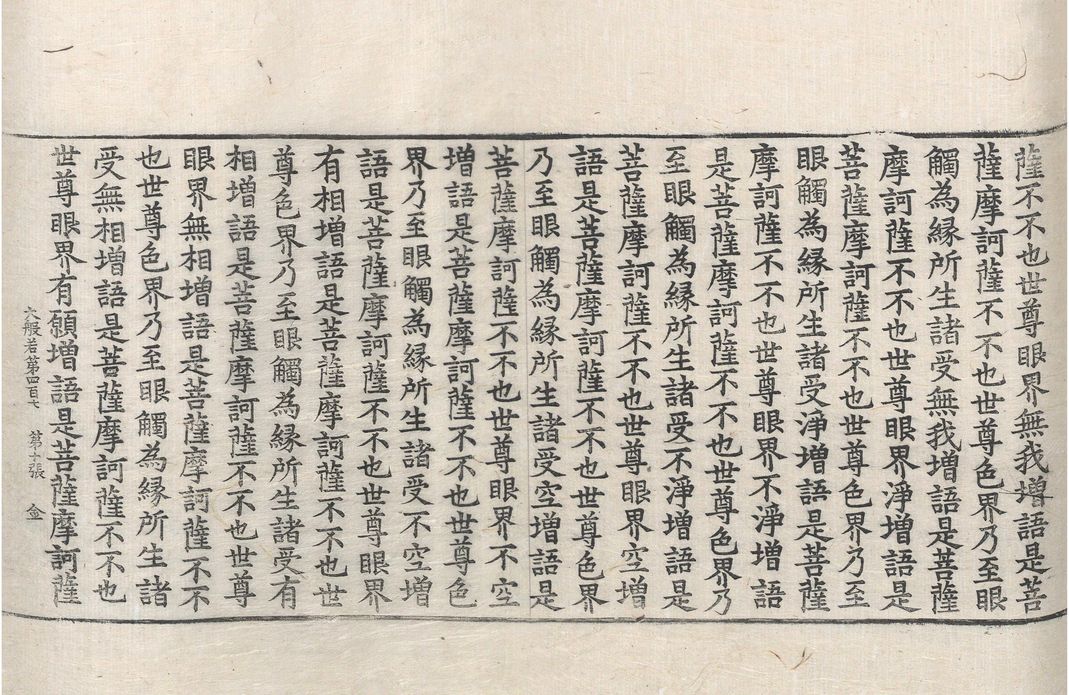 薩不不也世尊眼界無我增語是菩
薩摩訶薩不不也世尊色界乃至眼
觸為緣所生諸受無我增語是菩薩
摩訶薩不不也世尊眼界淨增語是
菩薩摩訶薩不不也世尊色界乃至
眼觸為緣所生諸受淨增語是菩薩
摩訶薩不不也世尊眼界不淨增語
是菩薩摩訶薩不不也世尊色界乃
至眼觸為緣所生諸受不淨增語是
菩薩摩訶薩不不也世尊眼界空增
語是菩薩摩訶薩不不也世尊色界
乃至眼觸為緣所生諸受空增語是
菩薩摩訶薩不不也世尊眼界不空
增語是菩薩摩訶薩不不也世尊色
界乃至眼觸為緣所生諸受不空增
語是菩薩摩訶薩不不也世尊眼界
有相增語是菩薩摩訶薩不不也世
尊色界乃至眼觸為緣所生諸受有
相增語是菩薩摩訶薩不不也世尊
眼界無相增語是菩薩摩訶薩不不
也世尊色界乃至眼觸為緣所生諸
受無相增語是菩薩摩訶薩不不也
世尊眼界有願增語是菩薩摩訶薩
大般若第四百七 第十張